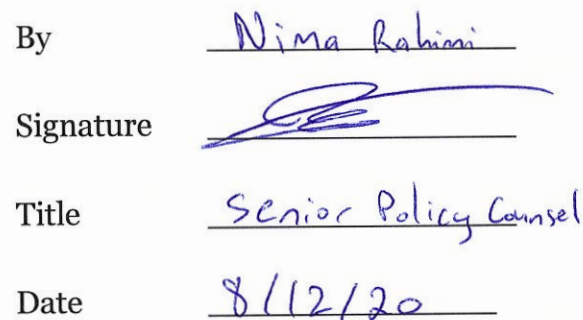 By Nima Rahimi
Signature
Title Senior Policy Counsel
Date 8/12/20